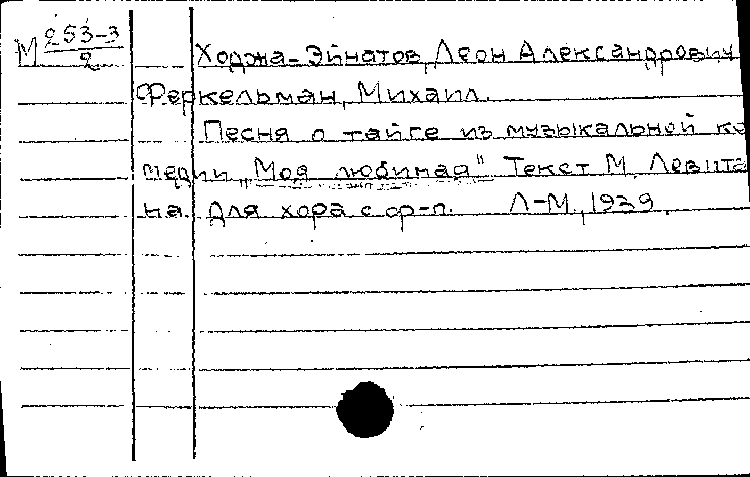 М 253-3
2
Ходжа-Эйнатов, Леон Александрович
Феркельман, Михаил.
Песня о тайге из музыкальной ко
медии „Моя любимая" Текст М. Левита
на. Для хора с ф-п. Л-М., 1939.